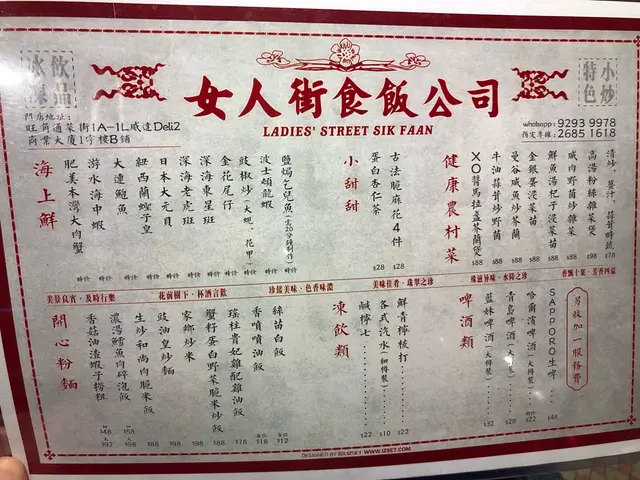 飲品
冰凍
門店地址:
旺角通菜街1A-1L威達Deli2
商業大廈1字樓B鋪
女人街食飯公司
LADIES' STREET SIK FAAN
小炒
特色
whatsapp: 9293 9978
預定專線: 2685 1618
清炒、薑汁、蒜茸時蔬 $78
高湯粉絲雜菜煲 $98
咸肉野菌炒雜菜 $88
鮮魚湯杞子浸菜苗 $88
金銀蛋浸莧菜 $88
曼谷咸魚炒芥蘭 $88
牛油蒜茸炒野菌 $88
XO醬馬拉盞芥蘭煲 $88
健康農村菜
古法脆麻花4件 $28
蛋白杏仁茶 $28
小甜甜
鹽焗乞兒魚(需20分鐘制作) 時價
波士頓龍蝦 時價
豉椒炒(大蜆、花甲) 時價
金花尾仔 時價
深海東星班 時價
深海老虎班 時價
日本大元貝 時價
紐西蘭鱆子皇 時價
大連鮑魚 時價
游水海中蝦 時價
肥美本灣大肉蟹 時價
海上鮮
美景良宵·及時行樂
花前樹下·杯酒言歡
珍饈美味·色香味濃
美味佳肴·珠翠之珍
殊滋异味·水陸之珍
香飄十里·芳香四溢
另收加一服務費
SAPPORO生啤 $48
哈爾濱啤酒(大樽裝) $22
青島啤酒(大樽裝) $28
藍妹啤酒(大樽裝) $32
啤酒類
鮮青檸梳打 $22
各式汽水(細樽裝) $10
鹹檸七 $22
凍飲類
絲苗白飯 $12
香噴噴油飯 $18
瑤柱貴妃雞配雞油飯 $78
蟹籽蛋白野菜脆米炒飯 $88
家鄉炒米 $88
豉油皇炒麵 $88
生炒和尚肉脆米飯 $98
濃湯鱈魚肉碎泡飯 $58 $98
香菇油渣蝦子撈粗 $48 $92
開心粉麵
DESIGNED BY 愛點 IZSET. WWW.IZSET.COM